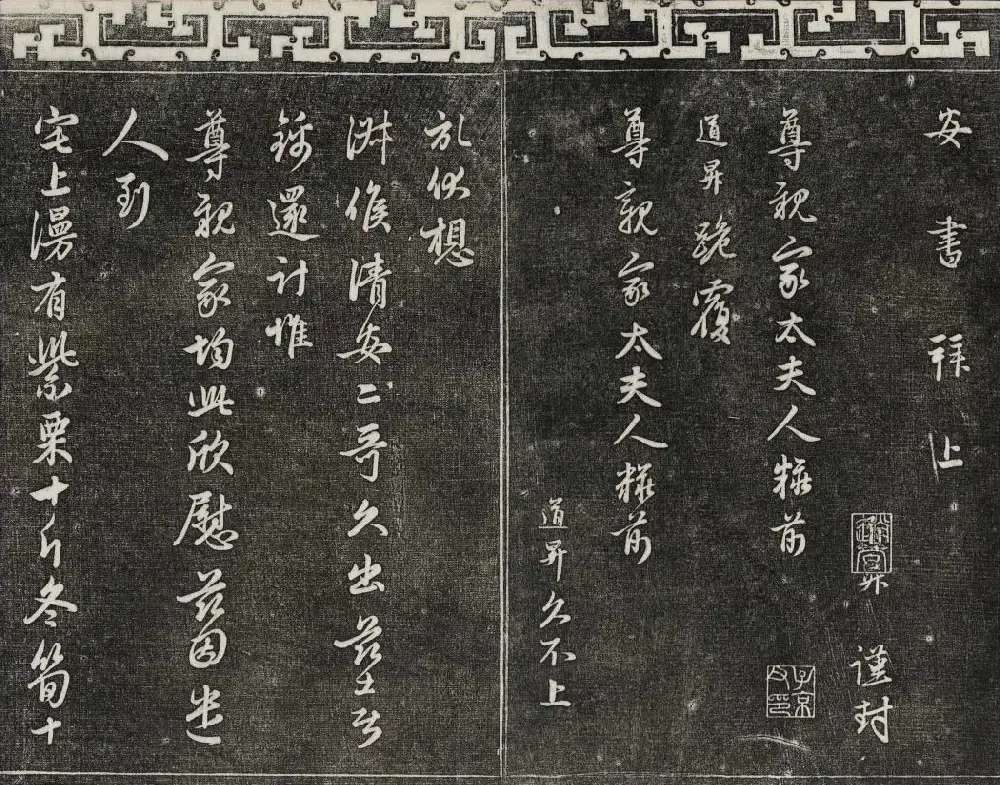 安書拜上
昇謹封
尊親家太夫人粧前
道昇跪覆
尊親家太夫人粧前
道昇久不上
伏想
淑候清安二哥久出茲喜
錦還計惟
尊親家均此欣慰茲因遣
人到
宅上漫有紫栗十斤冬筍十